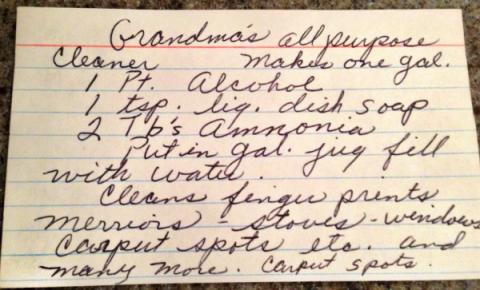 Grandma's all purpose
Cleaner Makes one gal.
1 Pt. Alcohol
1 tsp. liq. dish soap
2 Tb's Ammonia
Put in gal. jug fill
with water.
Cleans finger prents
merriors - stoves - windows
Carput spots etc. and
many more. Carput spots.